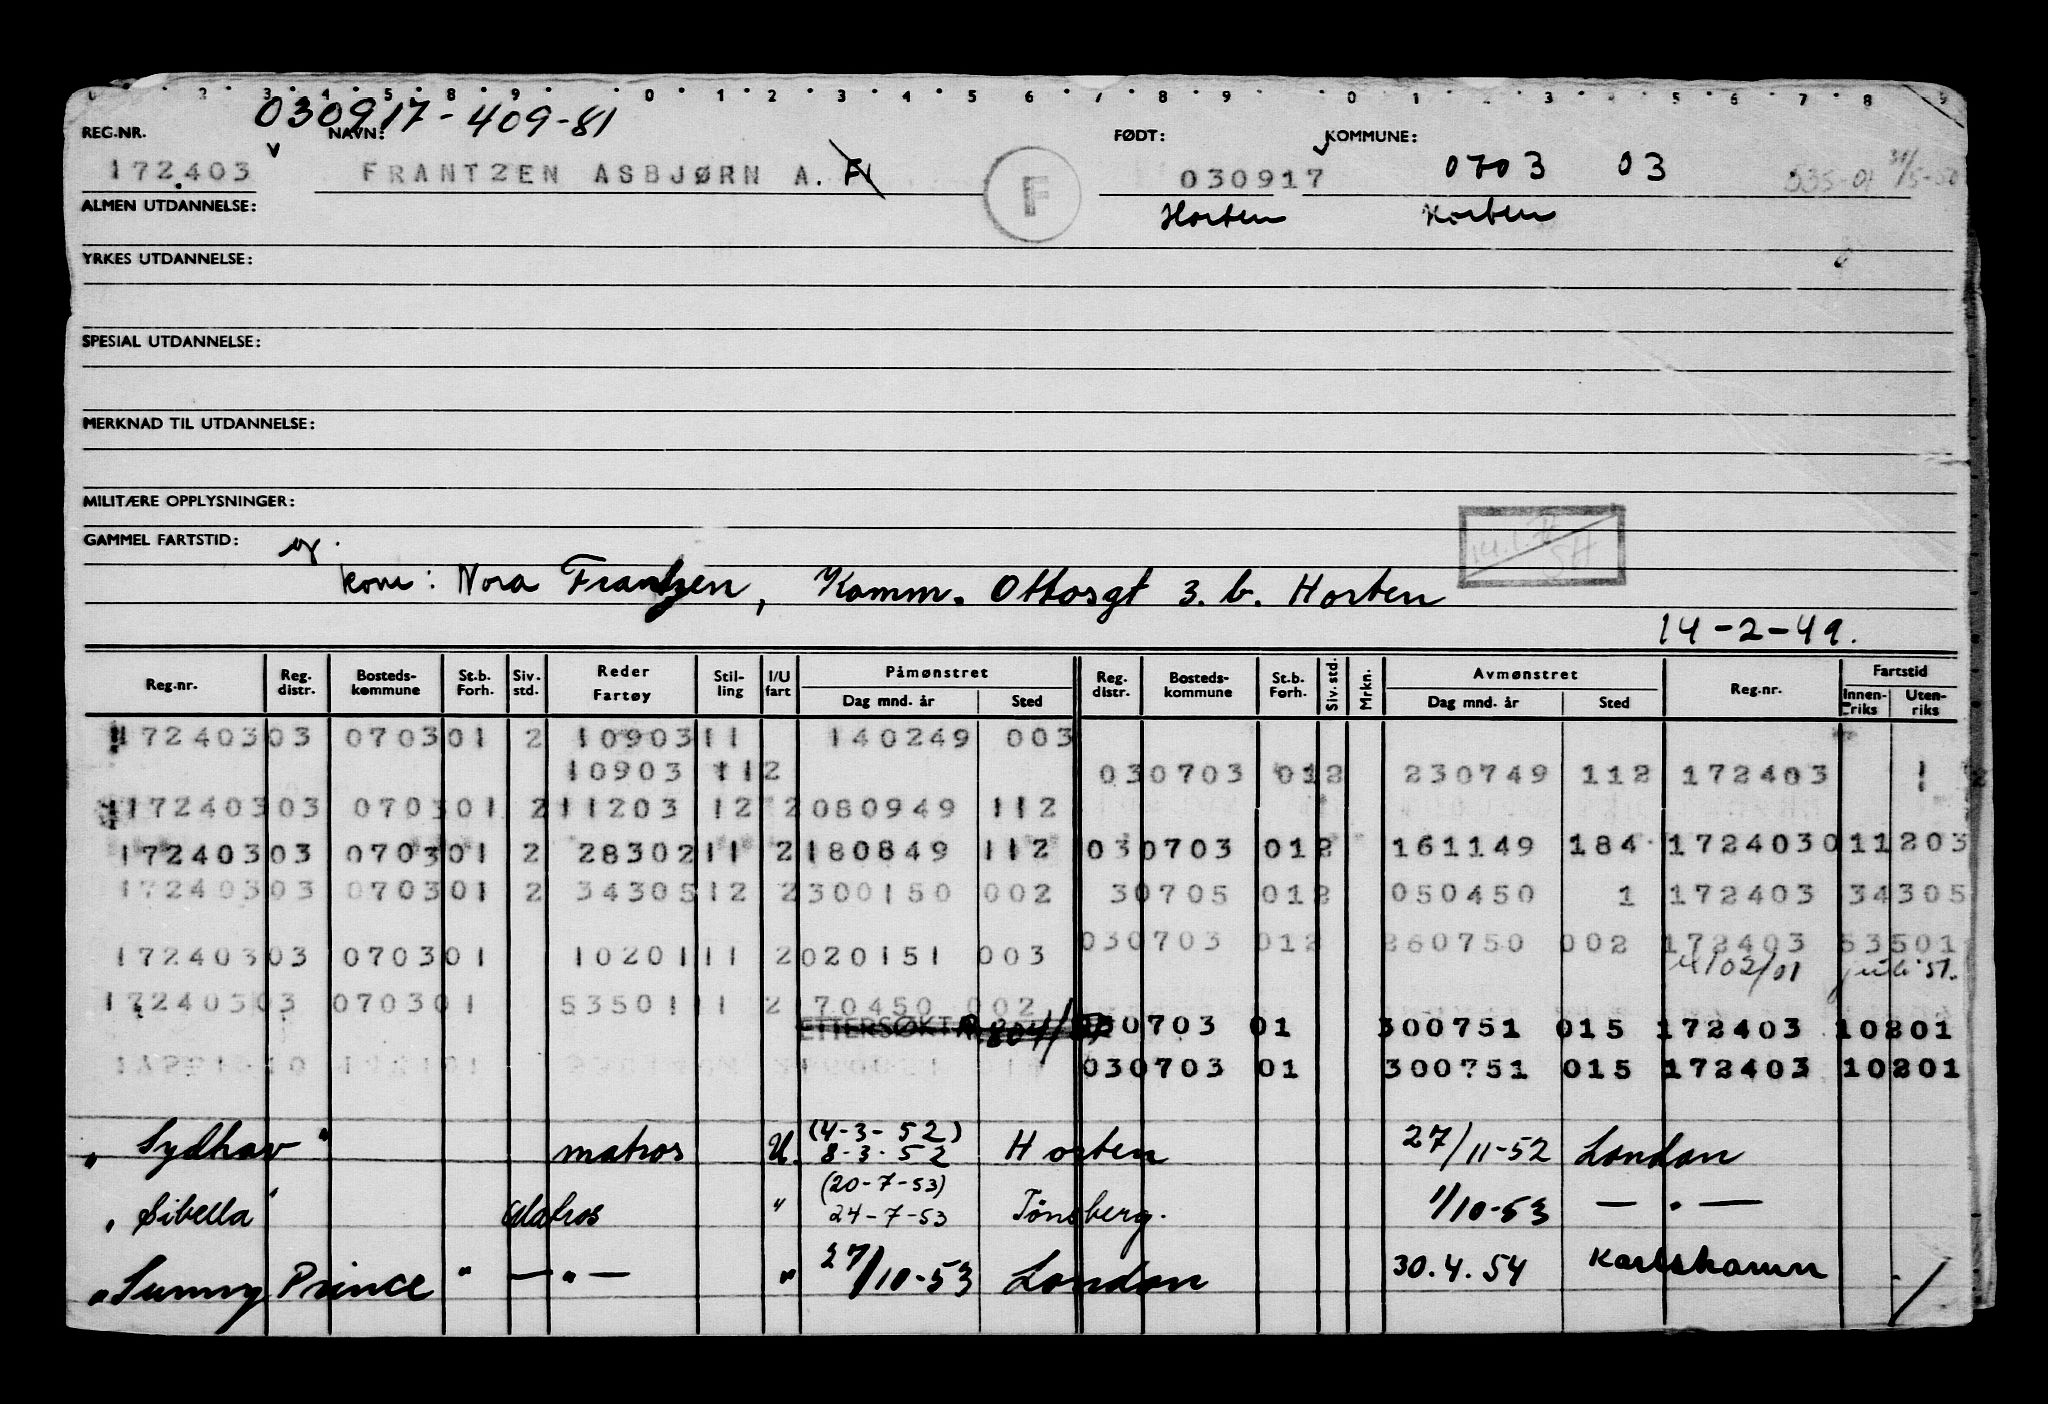 030917-409-81
REG.NR. NAVN: FØDT: KOMMUNE:
172403 FRANTZEN ASBJØRN A. F 030917 0703 03 535-01
Horten Horten
ALMEN UTDANNELSE:
YRKES UTDANNELSE:
SPESIAL UTDANNELSE:
MERKNAD TIL UTDANNELSE:
MILITÆRE OPPLYSNINGER:
GAMMEL FARTSTID:
kone: Nora Frantzen, Komm. Ottosgt 3. b. Horten
14-2-49.
Reg.nr. Reg. distr. Bosteds-kommune St.b. Forh. Siv. std. Reder Fartøy Stil-ling I/U fart Påmønstret Dag mnd. år Sted Reg. distr. Bosteds-kommune St.b. Forh. Siv. std. Mrkn. Avmønstret Dag mnd. år Sted Reg.nr. Fartstid Innen-riks Uten-riks
172403 03 0703 01 2 10903 11 140249 003
10903 112 030703 012 230749 112 172403 1
172403 03 0703 01 2 11203 12 2 080949 112
172403 03 0703 01 2 28302 11 2 180849 112 030703 012 161149 184 1724030 11203
172403 03 0703 01 2 34305 12 2 300150 002 30705 012 050450 1 172403 34305
030703 012 260750 002 172403 53501
172403 03 0703 01 10201 11 2 020151 003 juli 51.
172403 03 0703 01 53501 11 2 70450 002
ETTERSØKT 030703 01 300751 015 172403 10201
030703 01 300751 015 172403 10201
„ Sydhav " matros U. (4-3-52) 8-3-52 Horten 27/11-52 London
„ Sibella " Matros " (20-7-53) 24-7-53 Tönsberg. 1/10-53 — " —
„ Sunny Prince " — " — " 27/10-53 London 30.4.54 Karlshamn